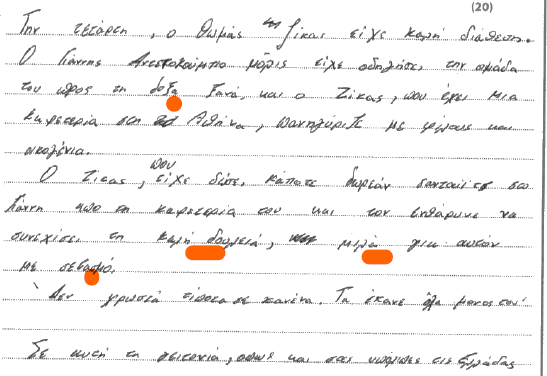 (20)
Την τετάρτη, ο Θωμάς Ζίκας είχε καλή διάθεση.
Ο Γιάννης Αντετοκούμπο μόλις είχε οδηγήσει την ομάδα
του προς τη δόξα ξανά, και ο Ζίκας, που έχει μια
καφετερία στη Αθήνα, πανηγύριζε με φίλους και
οικογένια.
που
Ο Ζίκας, είχε δώσει κάποτε δωρεάν σαντουιτς στο
Γιάννη απο τη καφετερία του και τον ενθάρυνε να
συνεχίσει τη καλή δουλειά, μιλά για αυτόν
με σεβασμό.
Δεν χρωστά τίποτα σε κανένα. Τα έκανε όλα μονος του
Σε αυτή τη γειτονιά, οπως και στις υπόλοιπες της Ελλάδας